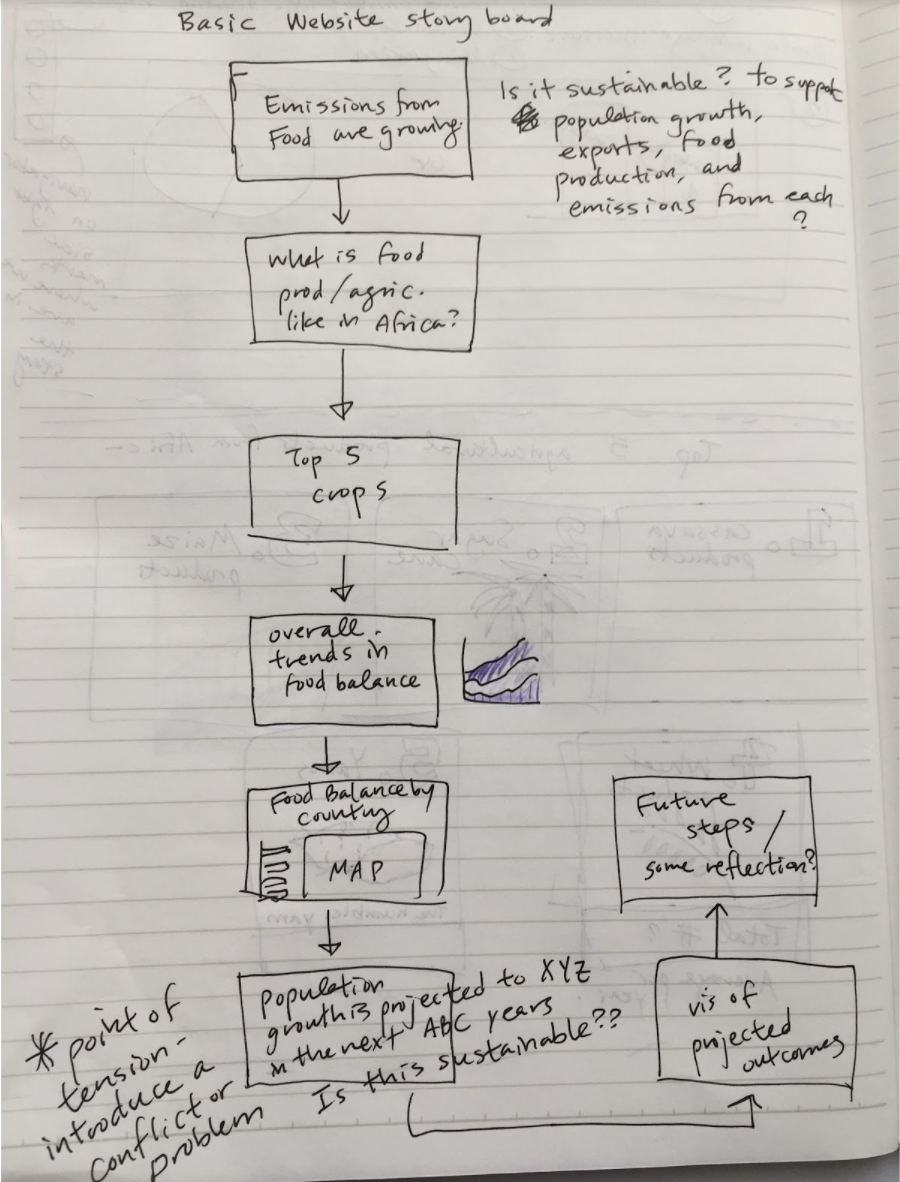 Basic Website story board
Emissions from
Food are growing.
Is it sustainable? to support
population growth,
exports, food
production, and
emissions from each
?
What is food
prod/agric.
like in Africa?
Top 5
crops
overall
trends in
food balance
Food Balance by
country
MAP
population
growth is projected to XYZ
in the next ABC years
Is this sustainable??
* point of
tension-
introduce a
conflict or
problem
vis of
projected
outcomes
Future
steps /
some reflection?
Top 5 agricultural products from Africa
Cassava
products
Sugar
Cane
Maize
products
Wheat
Yams
The humble yam
Total # ?